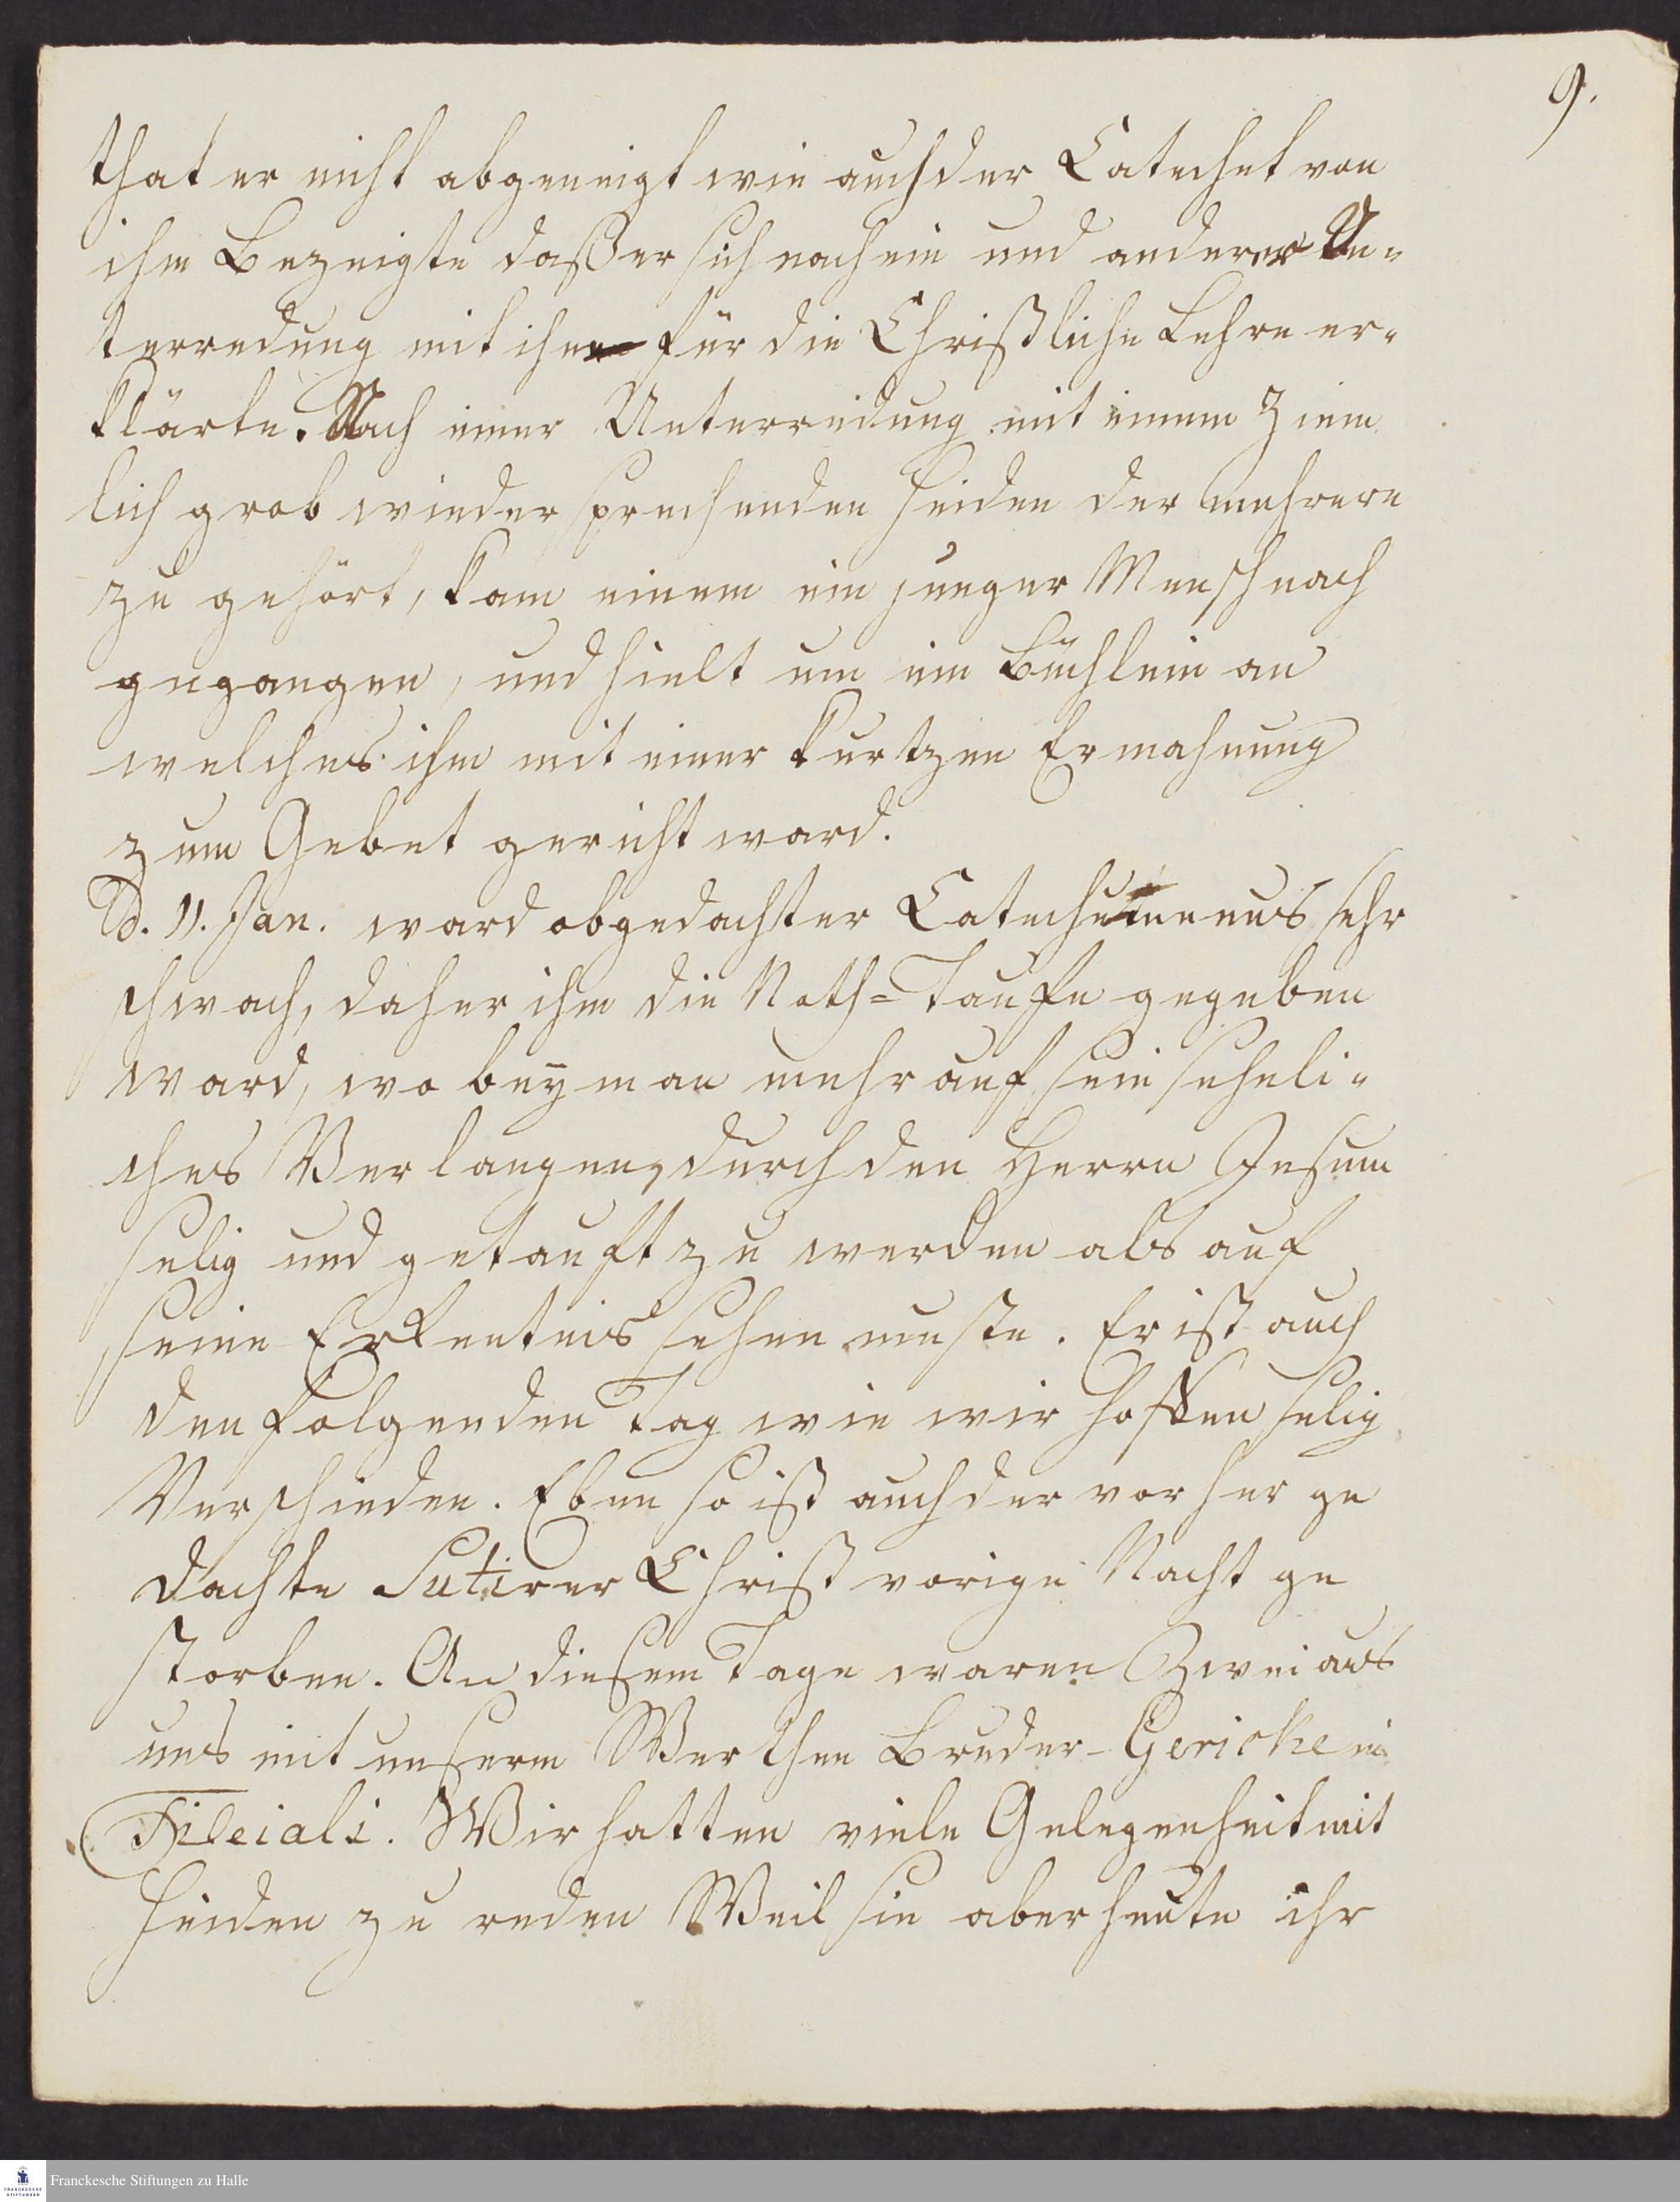 9.
that er nicht abgeneigt wie auch der Catechet von
ihm Bezeigte daß er sich nach ein und anderer Un-
terredung mit ihm für die Christliche Lehre er-
klärte. Nach einer Unterredung mit einem Ziem
lich grob wieder sprechenden Heiden der mehrere
zu gehört, kam einem ein junger Mensch nach
gegangen, und hielt um ein Büchlein an
welches ihm mit einer kurtzen Ermahnung
zum Gebet gericht ward.
D. 11. Jan. ward obgedachter Catechumenus sehr
schwach, daher ihm die Noth-Taufe gegeben
ward, wo bey man mehr auf sein sehnli-
ches Verlangen, durch den Herrn Jesum
selig und getauft zu werden als auf
seine Erkentnis sehen muste. Er ist auch
den folgenden Tag wie wir hoffen selig
Verschieden. Eben so ist auch der vorher ge
dachte Sutirer Christ vorige Nacht ge
storben. An diesem Tage waren Zwei aus
uns mit unserm Werthen Bruder Gericke in
Fileiali. Wir hatten viele Gelegenheit mit
Heiden zu reden Weil sie aber heute ihr
Franckesche Stiftungen zu Halle
FRANCKESCHE
STIFTUNGEN